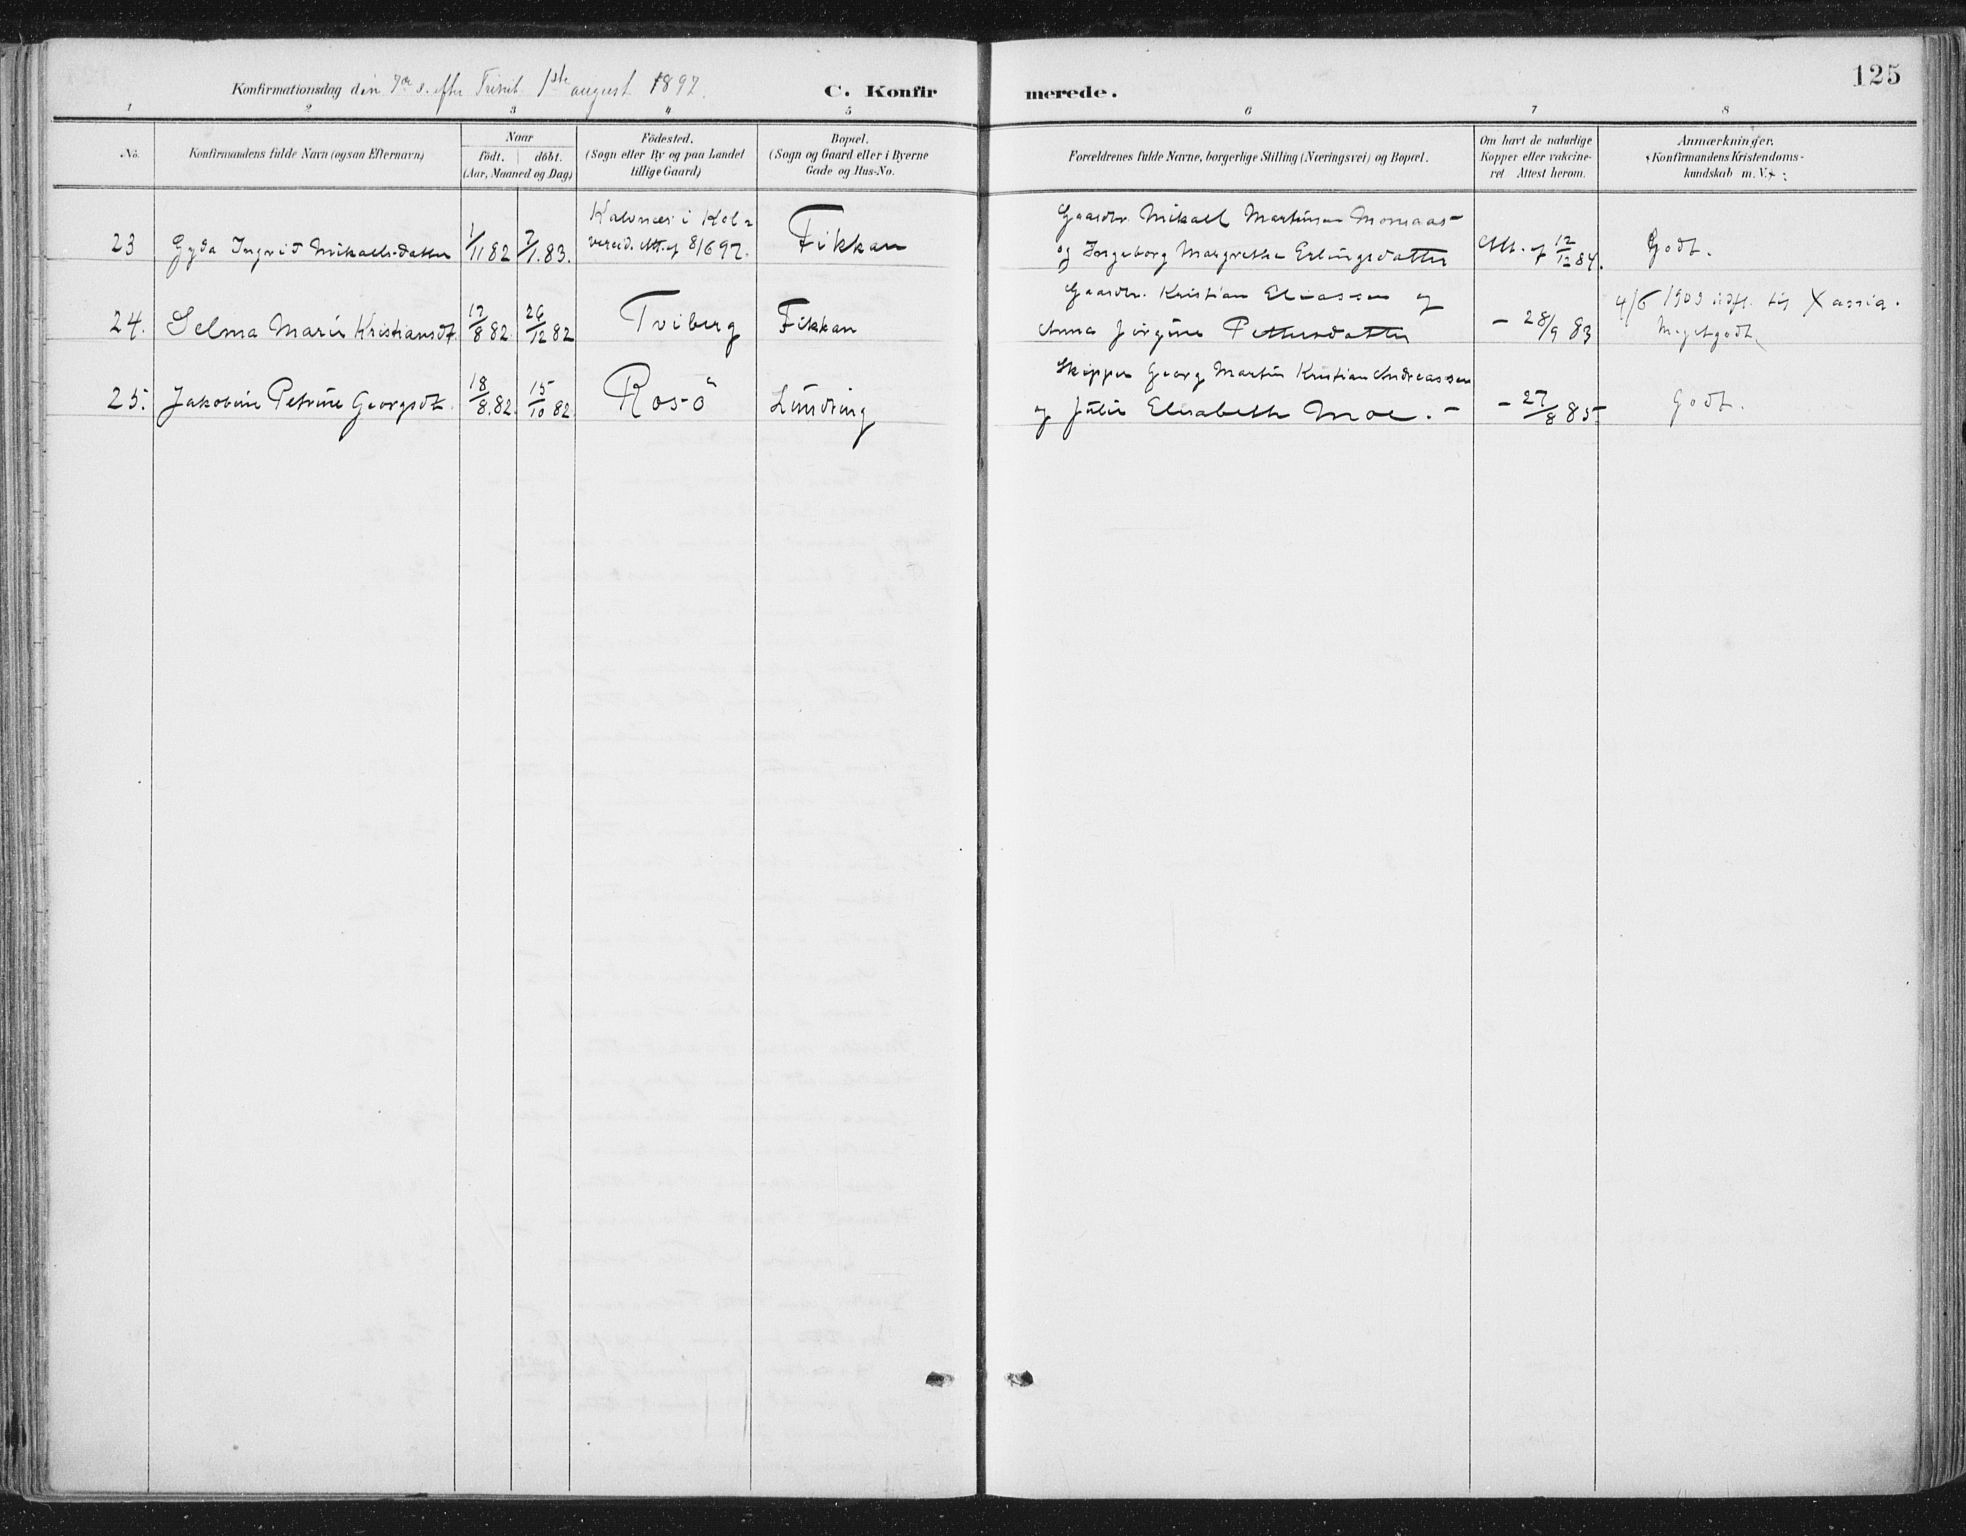 125
Konfirmationsdag den 7de S. efter Trinit. 1ste august 1897.
C. Konfirmerede.
1 2 3 4 5 6 7 8
No.
Konfirmandens fulde Navn (ogsaa Efternavn)
Naar
födt. döbt.
(Aar, Maaned og Dag)
Födested.
(Sogn eller By og paa Landet
tillige Gaard)
Bopæl.
(Sogn og Gaard eller i Byerne
Gade og Hus-No.
Forældrenes fulde Navne, borgerlige Stilling (Næringsvei) og Bopæl.
Om havt de naturlige
Kopper eller vakcine-
ret. Attest herom.
Anmærkninger.
(Konfirmandens Kristendoms-
kundskab m. V.)
Kalvnæs i Kol-
vereid. Att. af 8/6 97.
Gaardbr. Mikael Martinsen
23 Gyda Ingrid Mikaelsdatter 1/11 82 7/1. 83. Fikkan og Ingeborg Margrethe Erlingsdatter Att. af 12/12 84. Godt.
Gaardbr. Kristian Eliassen og 4/6 1909 udfl. til
24. Selma Marie Kristiansdt. 12/8 82. 26/12 82 Tviberg Fikkan Anna Jörgine Pettersdatter - 28/9 83 Megetgodt.
Skipper Georg Martin Kristian Andreassen
25. Jakobine Petrine Georgsdt. 18/8. 82. 15/10 82 Rosö Lundring og Julie Elisabeth Moe. - - 27/8 85 Godt.